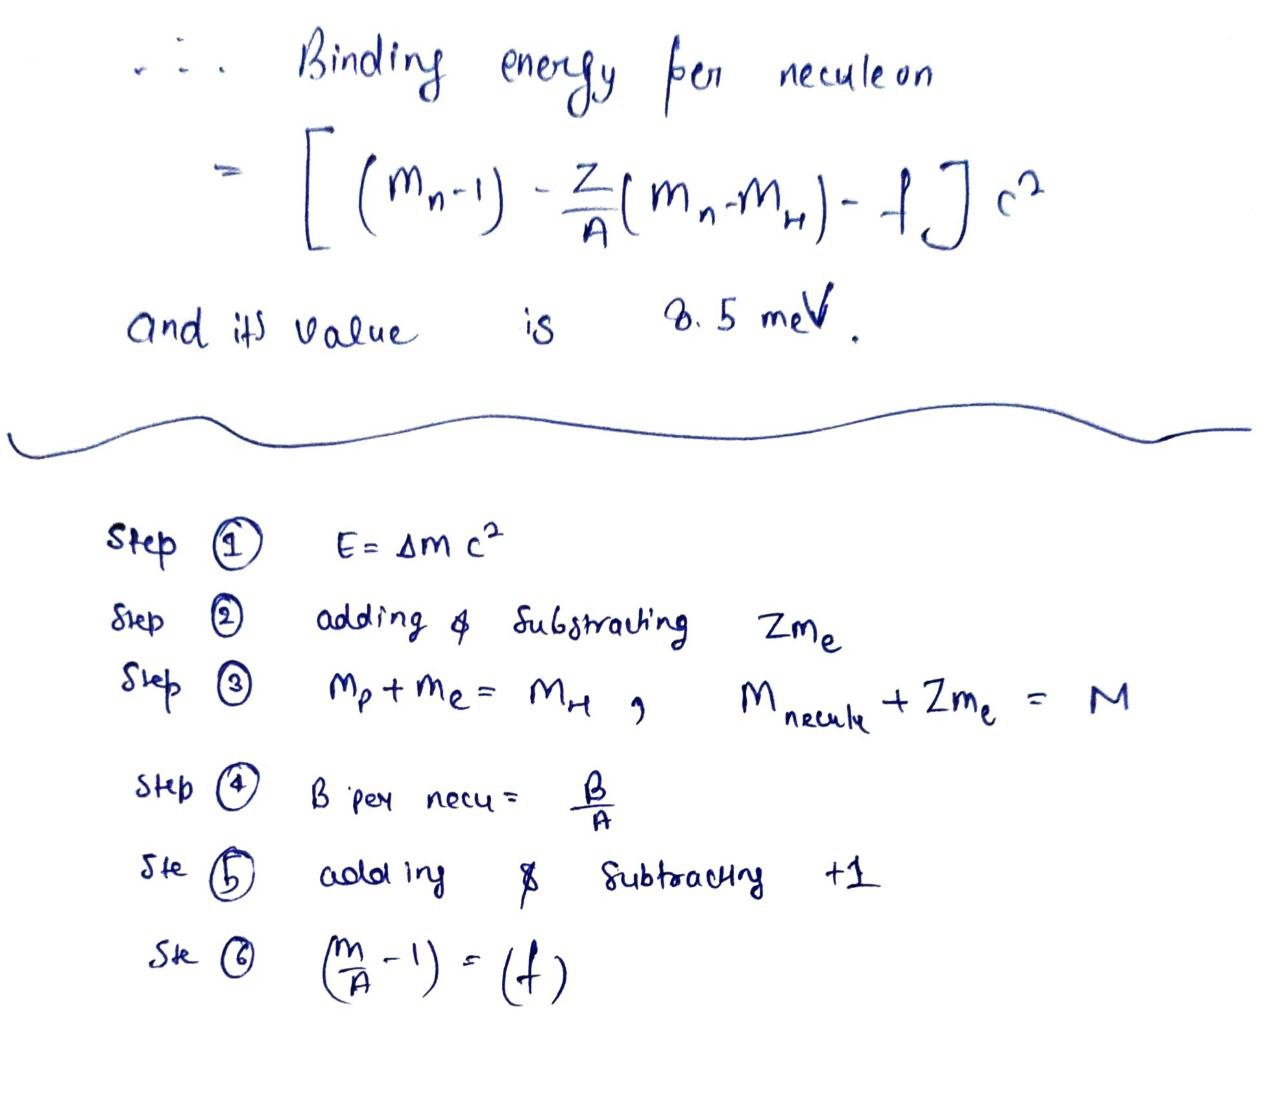 ∴ Binding energy per neculeon
= [ (Mn-1) - Z/A (Mn-MH) - f ] c²
and its value is 8.5 meV.
Step ① E = Δm c²
Step ② adding & Substracting Zme
Step ③ Mp + me = MH , M necule + Zme = M
Step ④ B per necu = B/A
Ste ⑤ adding & Subtracting +1
Ste ⑥ (M/A - 1) = (f)